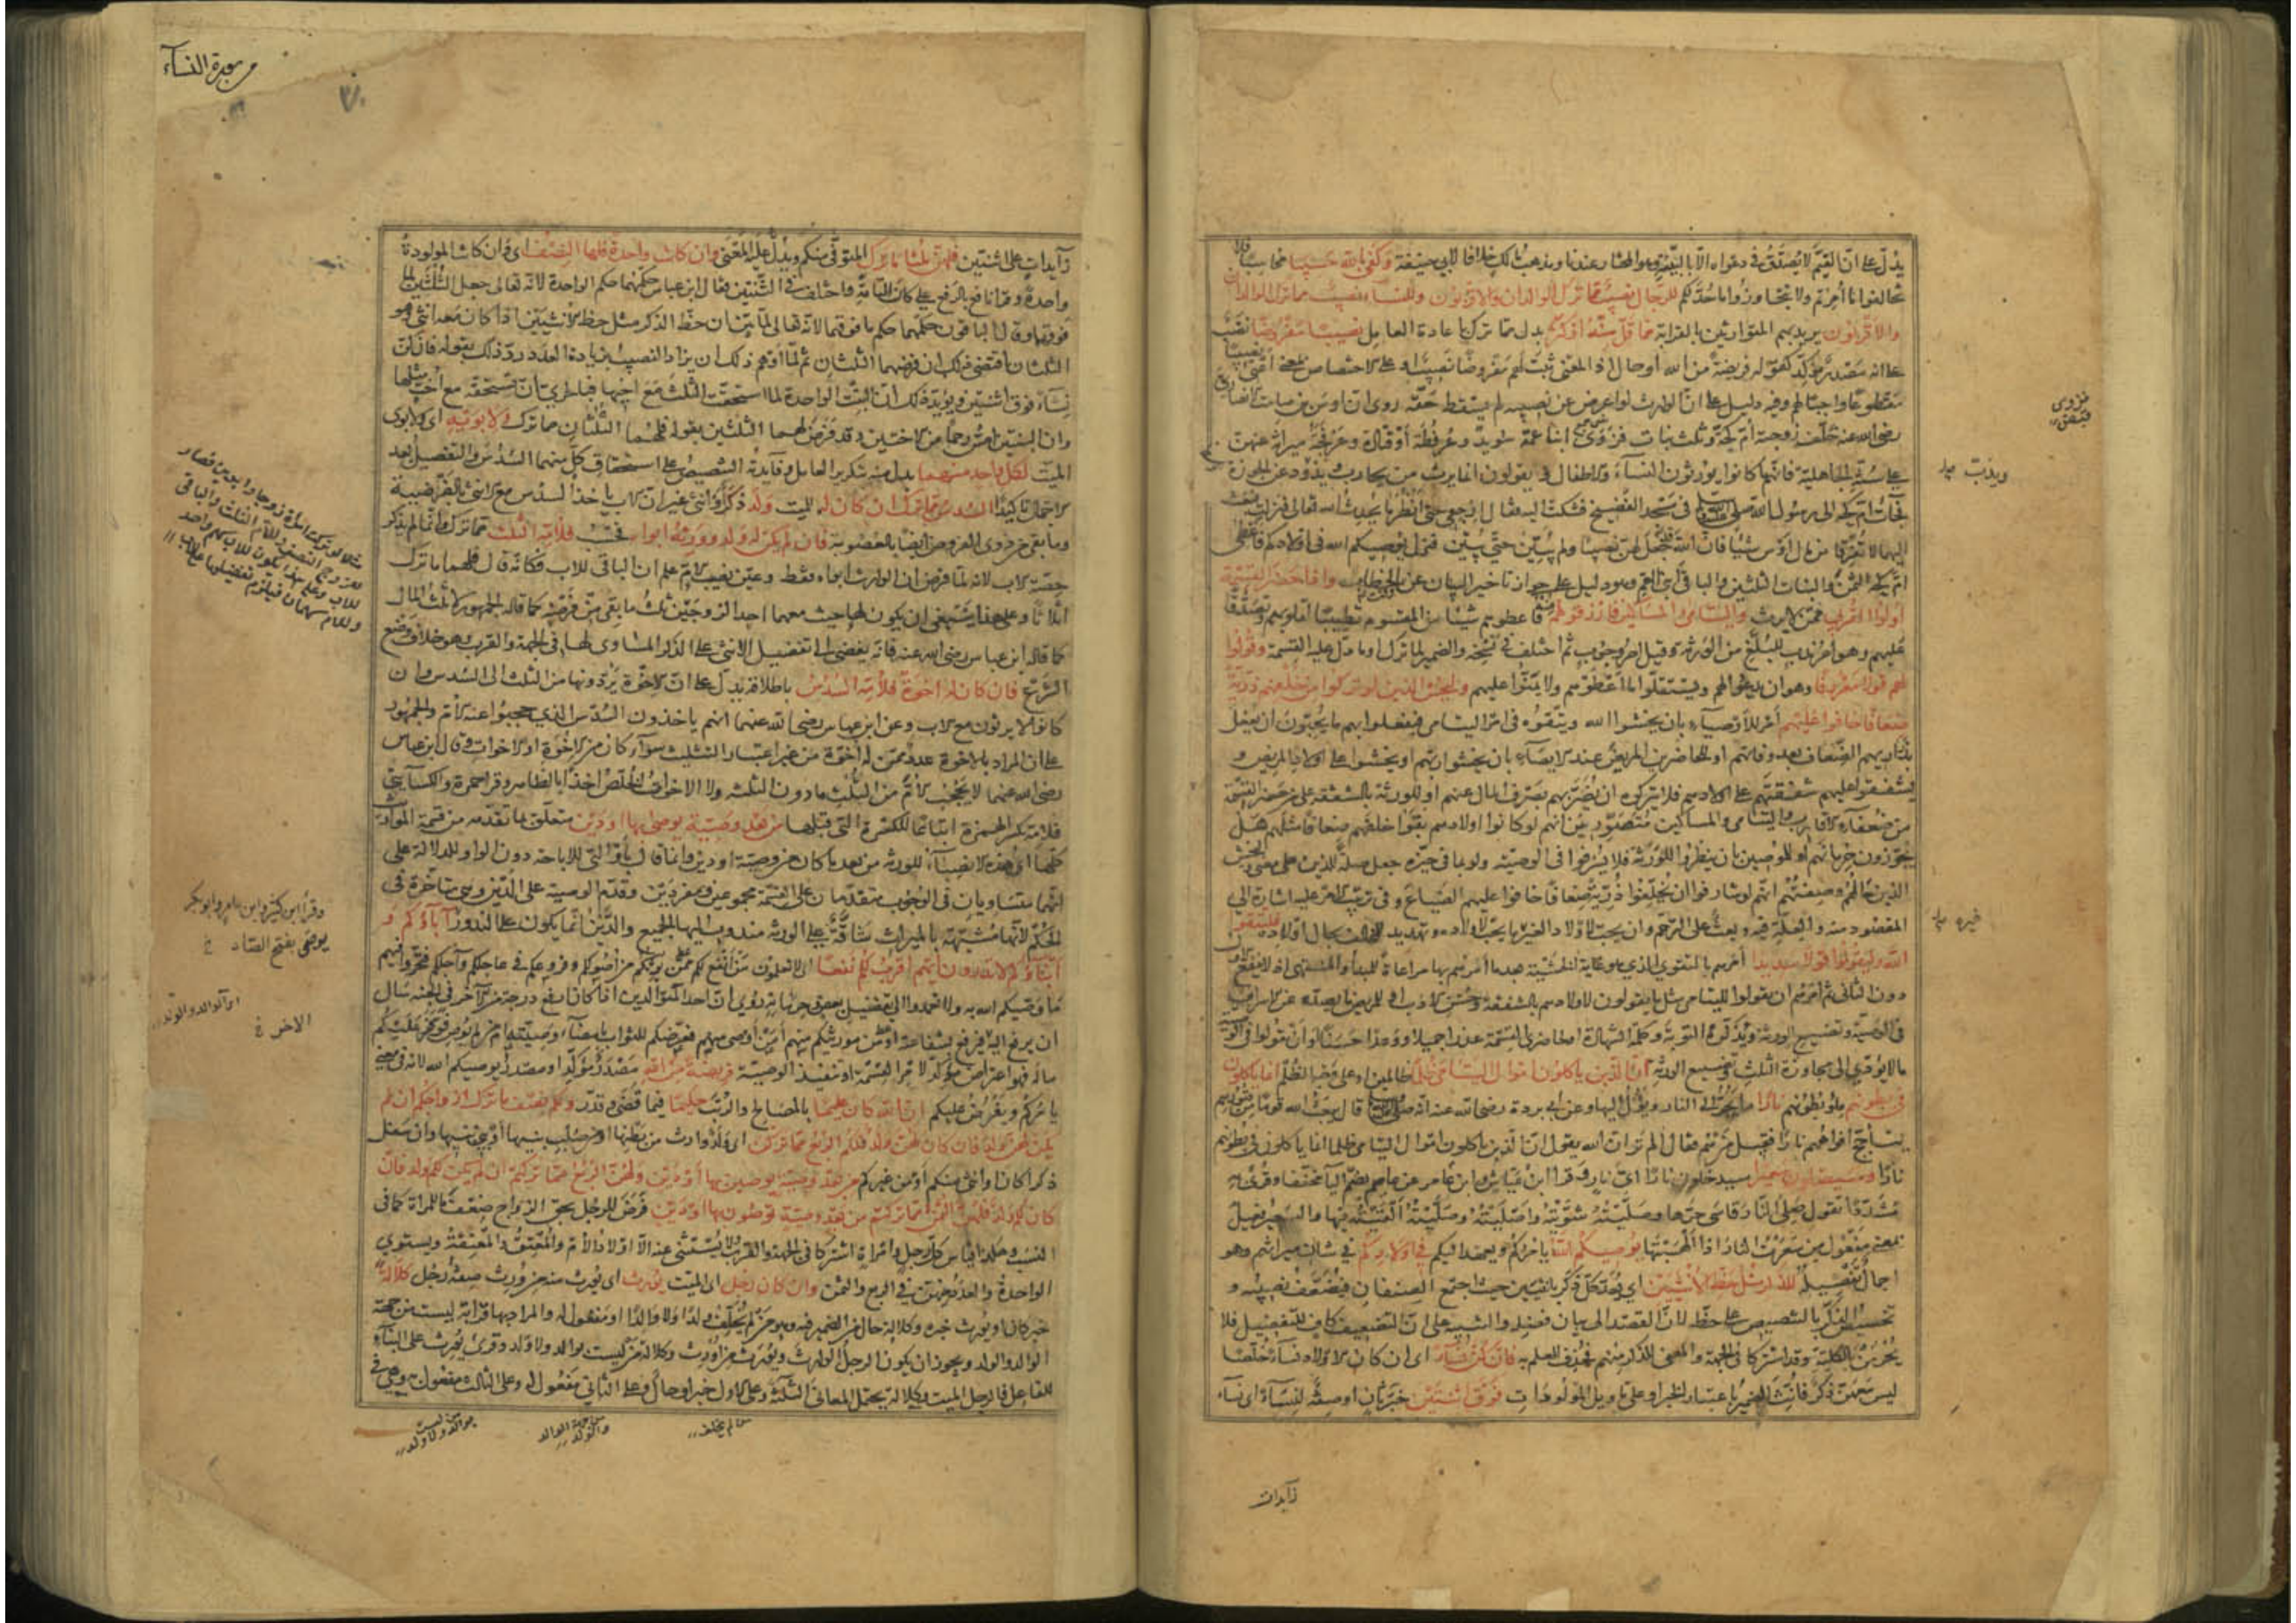 يدل على ان القيم لا يصدق في دعواه الا بالبينة وهو المختار عندنا ومذهب مالك خلافا لابي حنيفة وكفى بالله حسيبا محاسبا فلا
تخالفوا ما امرتم ولا تتجاوزوا ما حد لكم للرجال نصيب مما ترك الوالدان والاقربون وللنساء نصيب مما ترك الوالدان
والاقربون يريد بهم المتوارثين بالقرابة مما قل منه او كثر بدل مما ترك باعادة العامل نصيبا مفروضا نصب
على انه مصدر مؤكد كقوله فريضة من الله او حال اذ المعنى ثبت لهم مفروضا نصيب او على الاختصاص بمعنى اعني نصيبا
مقطوعا واجبا لهم وفيه دليل على ان الوارث لو اعرض عن نصيبه لم يسقط حقه روي ان اوس بن صامت الانصاري
رضي الله عنه خلف زوجته ام كحة وثلث بنات فزوى ابنا عمه سويد وعرفطة او قتادة وعرفجة ميراثه عنهن
على سنة الجاهلية فانهم كانوا يورثون النساء والاطفال ويقولون انما يرث من يحارب ويذود عن الحوزة
فجاءت ام كحة الى رسول الله صلى الله عليه وسلم في مسجد الفضيخ فشكت اليه فقال ارجعي حتى انظر ما يحدث الله تعالى فنزلت فبعث
اليهما لا تفرقا من مال اوس شيئا فان الله قد جعل لهن نصيبا ولم يبين حتى يبين فنزل يوصيكم الله في اولادكم فاعطى
ام كحة الثمن والبنات الثلثين والباقي ابني العم وهو دليل على جواز تاخير البيان عن الخطاب واذا حضر القسمة
اولوا القربى ممن لا يرث واليتامى والمساكين فارزقوهم منه فاعطوهم شيئا من المقسوم تطييبا لقلوبهم وتصدقا
عليهم وهو امر ندب للبلغ من الورثة وقيل امر وجوب ثم اختلف في نسخه والضمير لما ترك او ما دل عليه القسمة وقولوا
لهم قولا معروفا وهو ان يدعوا لهم ويستقلوا ما اعطوهم ولا يمنوا عليهم وليخش الذين لو تركوا من خلفهم ذرية
ضعافا خافوا عليهم امر للاوصياء بان يخشوا الله ويتقوه في امر اليتامى فيفعلوا بهم ما يحبون ان يفعل
بذراريهم الضعاف بعد وفاتهم او للحاضرين المريض عند الايصاء بان يخشوا ربهم او يخشوا على اولاد المريض و
يشفقوا عليهم شفقتهم على اولادهم فلا يتركوه ان يضر بهم بصرف المال عنهم او للورثة بالشفقة على من حضر القسمة
من ضعفاء الاقارب واليتامى والمساكين متصورين انهم لو كانوا اولادهم بقوا خلفهم ضعافا مثلهم هل
يجوزون حرمانهم او للموصين بان ينظروا للورثة فلا يسرفوا في الوصية ولو بما في حيزه جعل صلة للذين على معنى وليخش
الذين حالهم وصفتهم انهم لو شارفوا ان يخلفوا ذرية ضعافا خافوا عليهم الضياع وفي ترتيب الامر عليه اشارة الى
المقصود منه والعلة فيه وبعث على الترحم وان يحب لاولاد الغير ما يحب لاولاده وتهديد للمخالف بحال اولاده فليتقوا
الله وليقولوا قولا سديدا امرهم بالتقوى الذي هو غاية الخشية بعد ما امرهم بها مراعاة للمبدأ والمنتهى اذ لا ينفع الاول
دون الثاني ثم امرهم ان يقولوا لليتامى مثل ما يقولون لاولادهم بالشفقة وحسن الادب او للمريض ما يصده عن الاسراف
في الوصية وتضييع الورثة ويذكره التوبة وكلمة الشهادة او لحاضري القسمة عذرا جميلا ووعدا حسنا او ان يقولوا في الوصية
ما لا يؤدي الى مجاوزة الثلث وتضييع الورثة ان الذين ياكلون اموال اليتامى ظلما ظالمين او على وجه الظلم انما ياكلون
في بطونهم ملء بطونهم نارا ما يجر الى النار ويؤل اليها وعن ابي بردة رضي الله عنه انه صلى الله عليه وسلم قال يبعث الله قوما من قبورهم
يتأجج افواههم نارا فقيل من هم فقال الم تر ان الله يقول ان الذين ياكلون اموال اليتامى ظلما انما ياكلون في بطونهم
نارا وسيصلون سعيرا سيدخلون نارا اي نار وقرأ ابن عياش وابن عامر عن عاصم بضم اليا مخففا وقرئ به
مشددا تقول صلى النار قاسى حرها وصليته شويته واصليته وصليته القيته فيها والسعير فعيل
بمعنى مفعول من سعرت النار اذا الهبتها يوصيكم الله يامركم ويعهد اليكم في اولادكم في شان ميراثهم وهو
اجمال تفصيله للذكر مثل حظ الانثيين اي يعد كل ذكر بانثيين حيث اجتمع الصنفان فيضعف نصيبه و
تخصيص الذكر بالتنصيص على حظه لان القصد الى بيان فضله والتنبيه على ان التضعيف كاف للتفضيل فلا
يحرمن بالكلية وقد اشتركا في الجهة والمعنى للذكر منهم فحذف للعلم به فان كن نساء اي ان كان الاولاد نساء خلصا
ليس معهن ذكر فانث الضمير باعتبار الخبر او على تاويل المولودات فوق اثنتين خبر ثان او صفة لنساء اي نساء
زايدات
من سورة النسآء
زآيدات على اثنتين فلهن ثلثا ما ترك المتوفى منكم ويدل عليه المعنى وان كانت واحدة فلها النصف اي وان كانت المولودة
واحدة وقرأ نافع بالرفع على كان التامة واختلف في الثنتين فقال ابن عباس حكمهما حكم الواحدة لانه تعالى جعل الثلثين لما
فوقهما وقال الباقون حكمهما حكم ما فوقهما لانه تعالى لما بين ان حظ الذكر مثل حظ الانثيين اذا كان معه انثى وهو
الثلثان اقتضى ذلك ان فرضهما الثلثان ثم لما اوهم ذلك ان يزاد النصيب بزيادة العدد رد ذلك بقوله فان كن
نساء فوق اثنتين ويؤيد ذلك ان البنت الواحدة لما استحقت الثلث مع اخيها فبالحري ان تستحقه مع اخت مثلها
وان البنتين امس رحما من الاختين وقد فرض لهما الثلثين بقوله فلهما الثلثان مما ترك ولابويه اي ولابوي
الميت لكل واحد منهما بدل منه بتكرير العامل وفايدته التنصيص على استحقاق كل منهما السدس والتفصيل بعد
الاجمال تاكيدا السدس مما ترك ان كان له للميت ولد ذكر او انثى غير ان الاب ياخذ السدس مع الانثى بالفرضية
وما بقي من ذوي الفروض ايضا بالعصوبة فان لم يكن له ولد وورثه ابواه فحسب فلامه الثلث مما ترك وانما لم يذكر
حصة الاب لانه لما فرض ان الوارث ابواه فقط وعين نصيب الام علم ان الباقي للاب فكانه قال فلهما ما ترك
اثلاثا وعلى هذا ينبغي ان يكون لها حيث معهما احد الزوجين ثلث ما بقي من فرضه كما قاله الجمهور لا ثلث المال
كما قاله ابن عباس رضي الله عنه فانه يفضي الى تفضيل الانثى على الذكر المساوي لها في الجهة والقرب وهو خلاف وضع
الشرع فان كان له اخوة فلامه السدس باطلاقه يدل على ان الاخوة يردونها من الثلث الى السدس وان
كانوا لا يرثون مع الاب وعن ابن عباس رضي الله عنهما انهم ياخذون السدس الذي حجبوا عنه الام والجمهور
على ان المراد بالاخوة عدد ممن له اخوة من غير اعتبار التثليث سوآء كان من الاخوة او الاخوات وقال ابن عباس
رضي الله عنهما لا يحجب الام من الثلث ما دون الثلثة ولا الاخوات الخلص اخذا بالظاهر وقرأ حمزة والكسآئي
فلامه بكسر الهمزة اتباعا للكسرة التي قبلها من بعد وصية يوصى بها او دين متعلق بما تقدمه من قسمة المواريث
كلها اي هذه الانصباء للورثة من بعد ما كان من وصية او دين وانما قال باو التي للاباحة دون الواو للدلالة على
انهما متساويان في الوجوب متقدمان على القسمة مجموعين ومفردين وقدم الوصية على الدين وهي متاخرة في
الحكم لانها مشبهة بالميراث شاقة على الورثة مندوب اليها الجميع والدين انما يكون على الندور آباؤكم و
ابناؤكم لا تدرون ايهم اقرب لكم نفعا اي لا تعلمون من انفع لكم ممن يرثكم من اصولكم وفروعكم في عاجلكم وآجلكم فتحروا فيهم
ما وصيكم الله به ولا تعمدوا الى تفضيل بعض وحرمانه روي ان احد المتوالدين اذا كان ارفع درجة من الآخر في الجنة سال
ان يرفع اليه فيرفع بشفاعته او من مورثيكم منهم او من اوصى منهم فعرضكم للثواب بامضاء وصيته ام من لم يوص فوفر عليكم
ماله فهو اعتراض مؤكد لامر القسمة او تنفيذ الوصية فريضة من الله مصدر مؤكد او مصدر يوصيكم الله لانه في معنى
يامركم ويفرض عليكم ان الله كان عليما بالمصالح والرتب حكيما فيما قضى وقدر ولكم نصف ما ترك ازواجكم ان لم
يكن لهن ولد فان كان لهن ولد فلكم الربع مما تركن اي ولد وارث من بطنها او من صلب بنيها او بني بنيها وان سفل
ذكرا كان او انثى منكم او من غيركم من بعد وصية يوصين بها او دين ولهن الربع مما تركتم ان لم يكن لكم ولد فان
كان لكم ولد فلهن الثمن مما تركتم من بعد وصية توصون بها او دين فرض للرجل بحق الزواج ضعف ما للمرأة كما في
النسب وهكذا قياس كل رجل وامرأة اشتركا في الجهة والقرب ولا يستثنى عنه الا اولاد الام والمعتق والمعتقة ويستوي
الواحدة والعدد منهن في الربع والثمن وان كان رجل اي الميت يورث اي يورث منه من ورث صفة رجل كلالة
خبر كان او يورث خبره وكلالة حال من الضمير فيه وهو من لم يخلف ولدا ولا والدا او مفعول له والمراد بها قرابة ليست من جهة
الوالد والولد ويجوز ان يكون الرجل الوارث ويورث من اورث وكلالة من ليس بوالد ولا ولد وقرئ يورث على البناء
للفاعل فالرجل الميت وكلالة يحتمل المعاني الثلثة وعلى الاول خبر او حال وعلى الثاني مفعول له وعلى الثالث مفعول به وهي في
وقرأ ابن كثير وابن عامر وابو بكر
يوصى بفتح الصاد